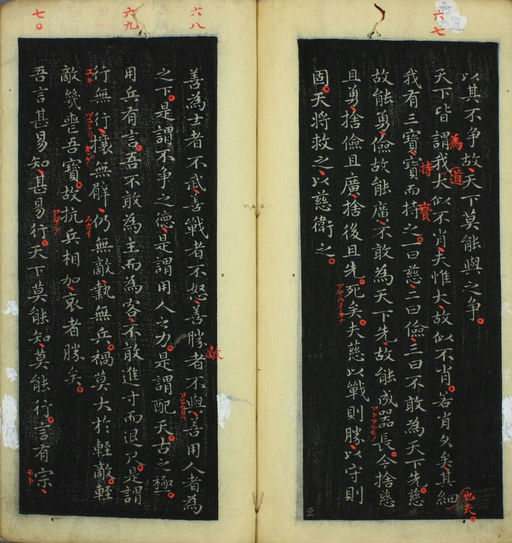 六七
以其不争故天下莫能與之争
天下皆謂我大似不肖夫惟大故似不肖若肖久矣其細
也夫
為
道
我有三寶寶而持之一曰慈二曰儉三曰不敢為天下先慈
持
寳
故能勇儉故能廣不敢為天下先故能成器長今捨慈
且勇捨儉且廣捨後且先死矣夫慈以戰則勝以守則
固天將救之以慈衛之
六八
善為士者不武善戰者不怒善勝者不與善用人者為
敵
之下是謂不争之德是謂用人之力是謂配天古之極
六九
用兵有言吾不敢為主而為客不敢進寸而退尺是謂
行無行攘無臂仍無敵執無兵禍莫大於輕敵輕
敵幾喪吾寶故抗兵相加哀者勝矣
七〇
吾言甚易知甚易行天下莫能知莫能行言有宗
モト